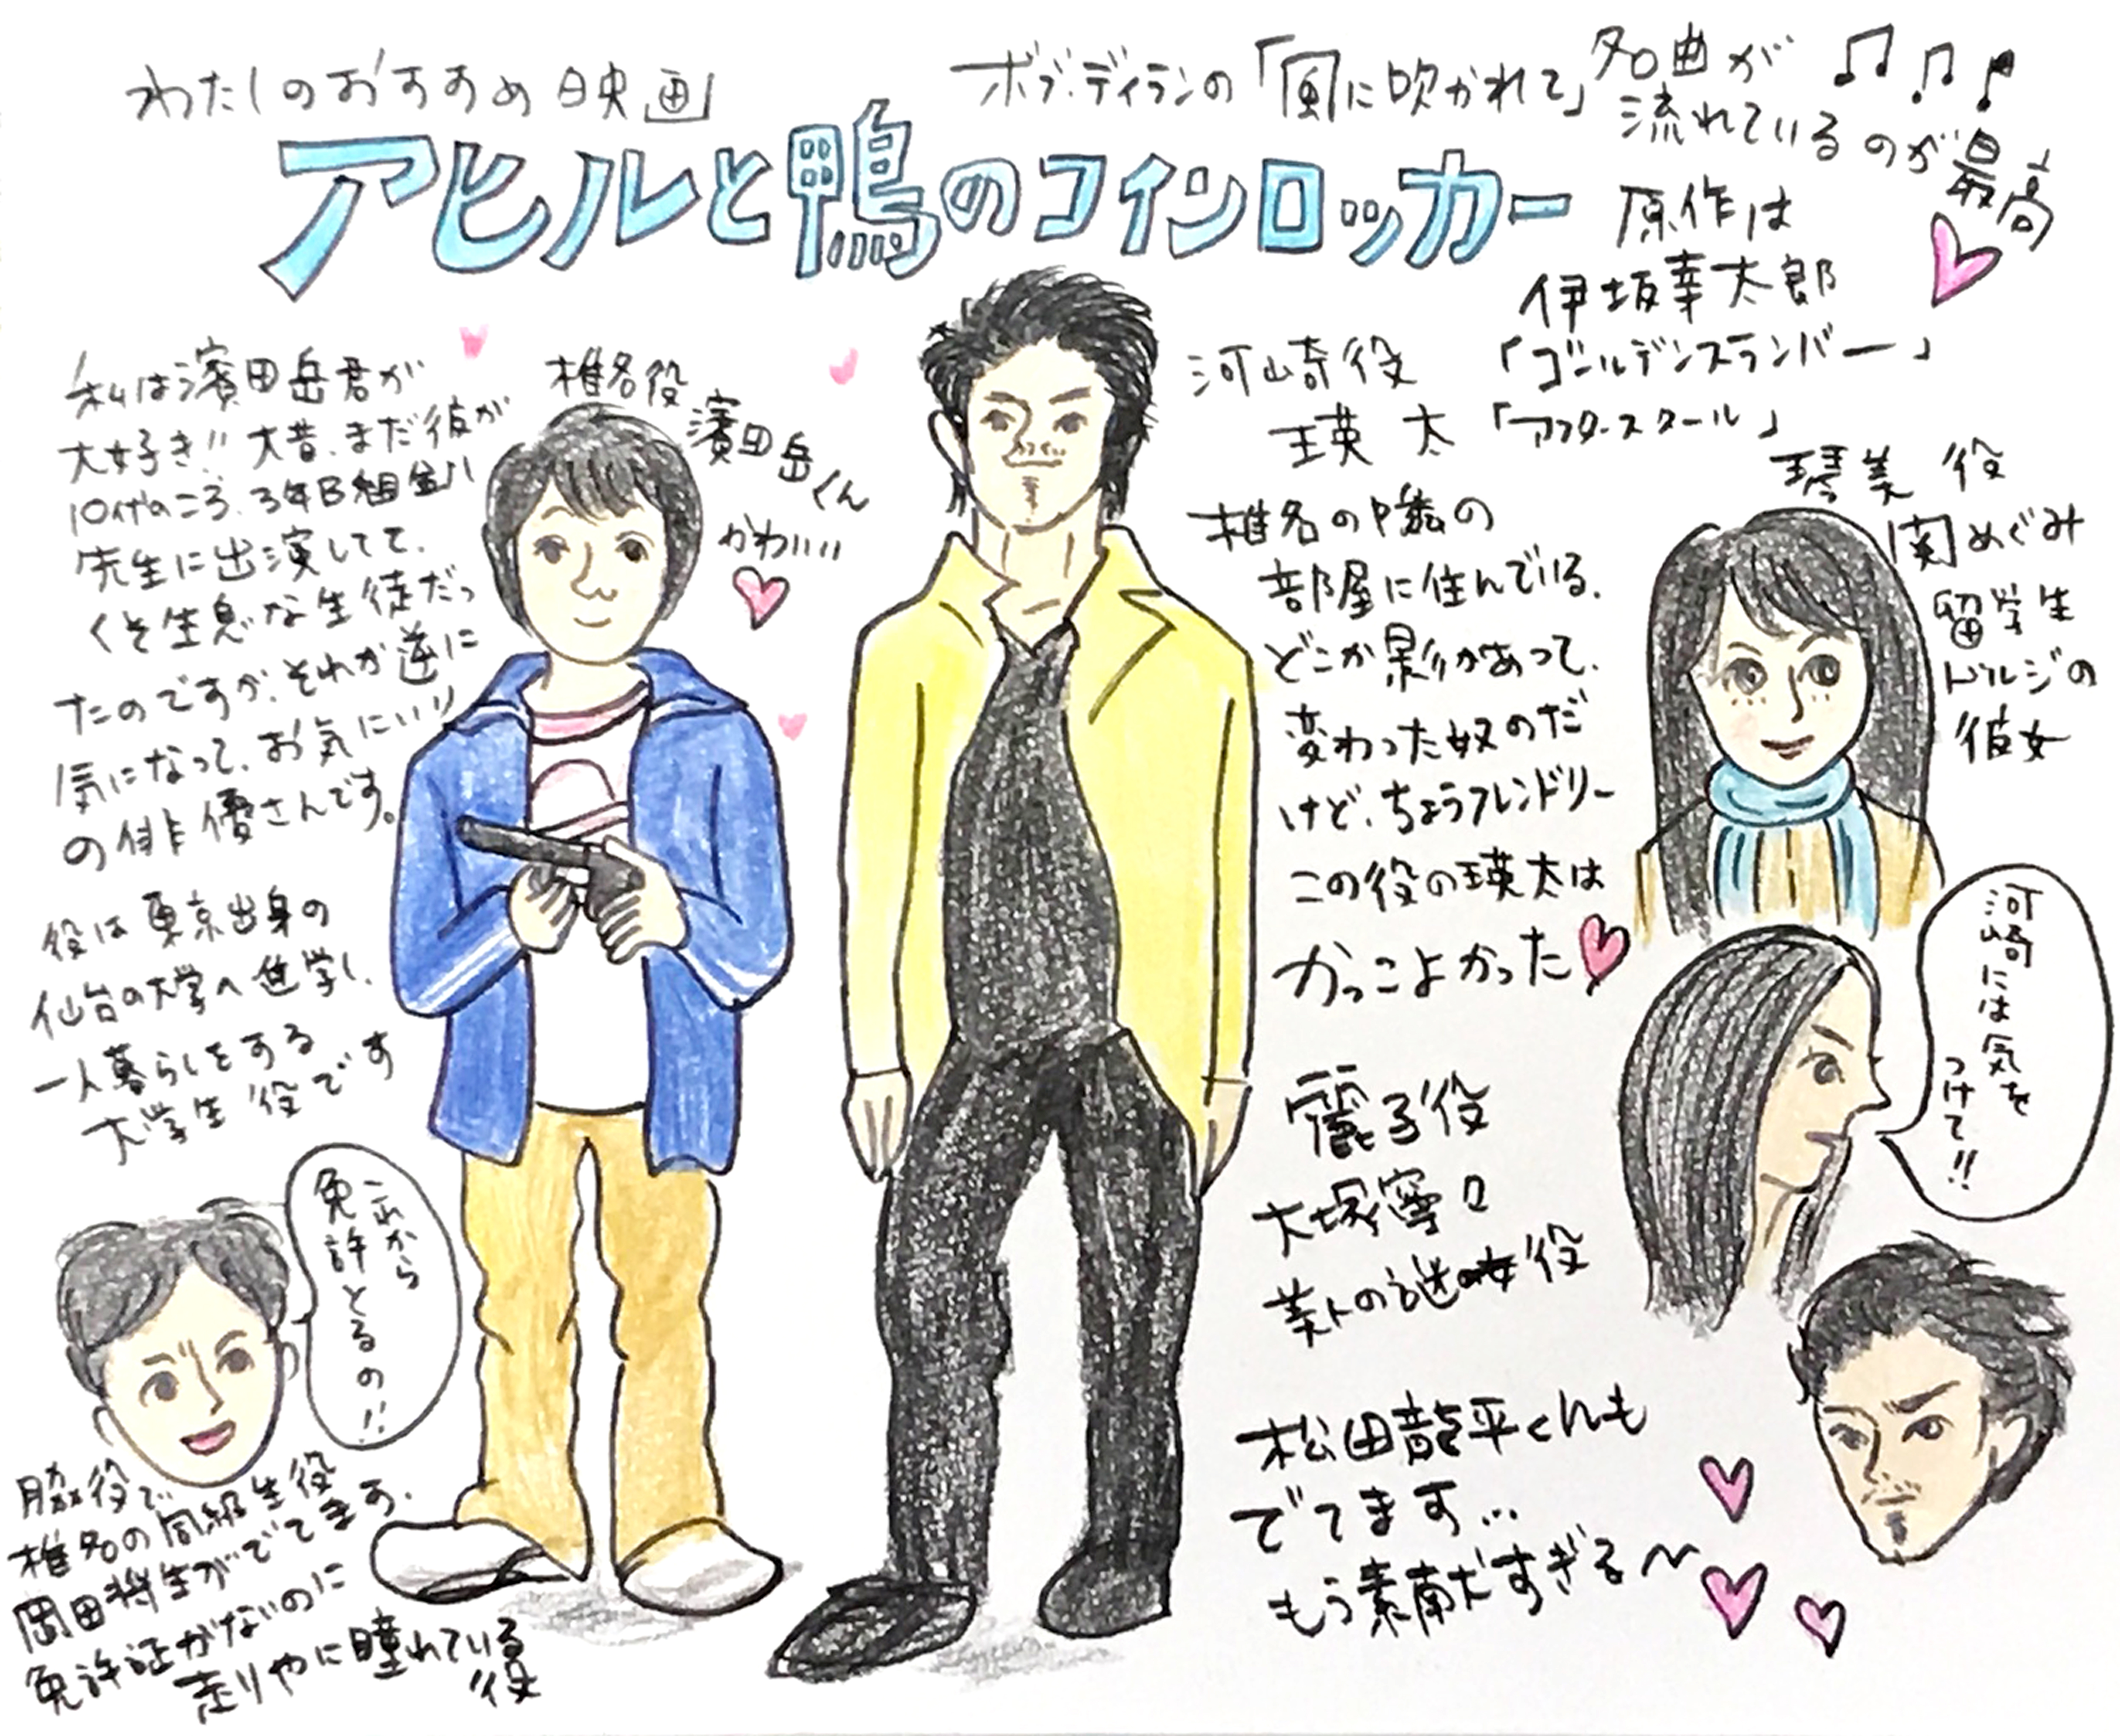 わたしのおすすめ映画
アヒルと鴨のコインロッカー
ボブ・ディランの「風に吹かれて」名曲が
流れているのが最高
原作は
伊坂幸太郎
「ゴールデンスランバー」
「アフタースクール」
私は濱田岳君が
大好き!!大昔、まだ彼が
10代のころ、3年B組金八
先生に出演してて、
くそ生意気な生徒だっ
たのですが、それが逆に
気になって、お気にいり
の俳優さんです。
役は東京出身の
仙台の大学へ進学し、
一人暮らしをする
大学生役です
椎名役
濱田岳くん
かわいい
河崎役
瑛太
椎名の隣の
部屋に住んでいる。
どこか影があって、
変わった奴のだ
けど、ちょうフレンドリー
この役の瑛太は
かっこよかった
琴美役
関めぐみ
留学生
ドルジの
彼女
河崎には気を
つけて!!
麗子役
大塚寧々
美人の謎の女役
松田龍平くんも
でてます…
もう素敵だすぎる〜
これから
免許とるの!!
脇役で
椎名の同級生役
岡田将生がでてます。
免許証がないのに
走りやに憧れている
役